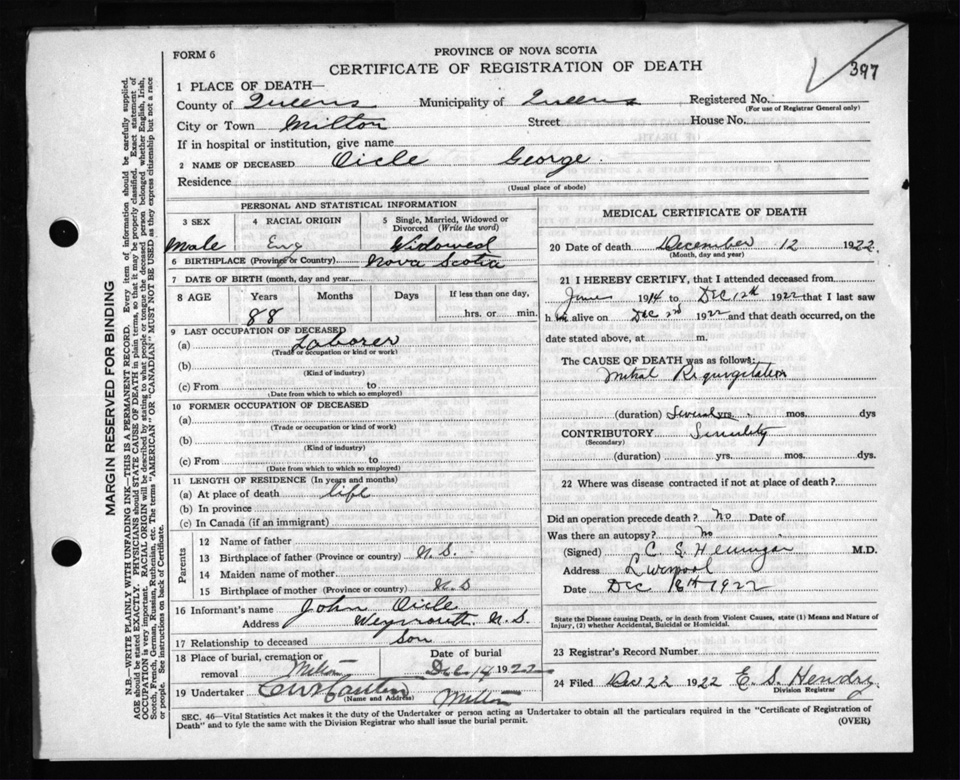 397
FORM 6
PROVINCE OF NOVA SCOTIA
CERTIFICATE OF REGISTRATION OF DEATH
1 PLACE OF DEATH—
County of Queens Municipality of Queens Registered No.
(For use of Registrar General only)
City or Town Milton Street House No.
If in hospital or institution, give name
2 NAME OF DECEASED Oicle George
Residence
(Usual place of abode)
PERSONAL AND STATISTICAL INFORMATION
3 SEX 4 RACIAL ORIGIN 5 Single, Married, Widowed or Divorced (Write the word)
Male Eng Widowed
6 BIRTHPLACE (Province or Country) Nova Scotia
7 DATE OF BIRTH (month, day and year)
8 AGE Years Months Days If less than one day,
88 hrs. or min.
9 LAST OCCUPATION OF DECEASED
(a) Laborer
(Trade or occupation or kind of work)
(b)
(Kind of industry)
(c) From to
(Date from which to which so employed)
10 FORMER OCCUPATION OF DECEASED
(a)
(Trade or occupation or kind of work)
(b)
(Kind of industry)
(c) From to
(Date from which to which so employed)
11 LENGTH OF RESIDENCE (In years and months)
(a) At place of death life
(b) In province
(c) In Canada (if an immigrant)
Parents
12 Name of father
13 Birthplace of father (Province or country) N.S.
14 Maiden name of mother
15 Birthplace of mother (Province or country) N.S
16 Informant's name John Oicle
Address Weymouth N.S.
17 Relationship to deceased Son
18 Place of burial, cremation or removal Milton Date of burial Dec. 14 1922
19 Undertaker Milton
(Name and Address)
MEDICAL CERTIFICATE OF DEATH
20 Date of death December 12 1922.
(Month, day and year)
21 I HEREBY CERTIFY, that I attended deceased from
June 1914 to Dec 12th 1922 that I last saw
him alive on Dec 2nd 1922 and that death occurred, on the
date stated above, at m.
The CAUSE OF DEATH was as follows:
Mitral Regurgitation
(duration) Several yrs. mos. dys
CONTRIBUTORY Senility
(Secondary)
(duration) yrs. mos. dys.
22 Where was disease contracted if not at place of death?
Did an operation precede death? No Date of
Was there an autopsy? No
(Signed) C. E. M.D.
Address Liverpool
Date Dec 1922
State the Disease causing Death, or in death from Violent Causes, state (1) Means and Nature of Injury, (2) whether Accidental, Suicidal or Homicidal.
23 Registrar's Record Number
24 Filed Dec 22 1922 E. S. Hendry
Division Registrar
SEC. 46—Vital Statistics Act makes it the duty of the Undertaker or person acting as Undertaker to obtain all the particulars required in the "Certificate of Registration of
Death" and to fyle the same with the Division Registrar who shall issue the burial permit. (OVER)
MARGIN RESERVED FOR BINDING
N.B.—WRITE PLAINLY WITH UNFADING INK—THIS IS A PERMANENT RECORD. Every item of information should be carefully supplied.
AGE should be stated EXACTLY. PHYSICIANS should STATE CAUSE OF DEATH in plain terms, so that it may be properly classified. Exact statement of
OCCUPATION is very important. RACIAL ORIGIN will be described by stating to what people or tongue the deceased person belonged whether English, Irish,
Scotch, French, German, Russian, Ruthenian, etc. The terms "AMERICAN" OR "CANADIAN" MUST NOT BE USED as they express citizenship but not a race
or people. See instructions on back of Certificate.